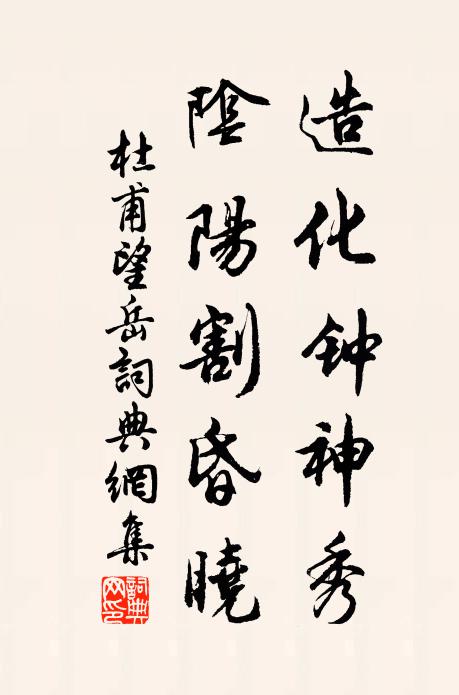 造化钟神秀
陰陽割昏曉
杜甫望岳詞典網集
詞典网印